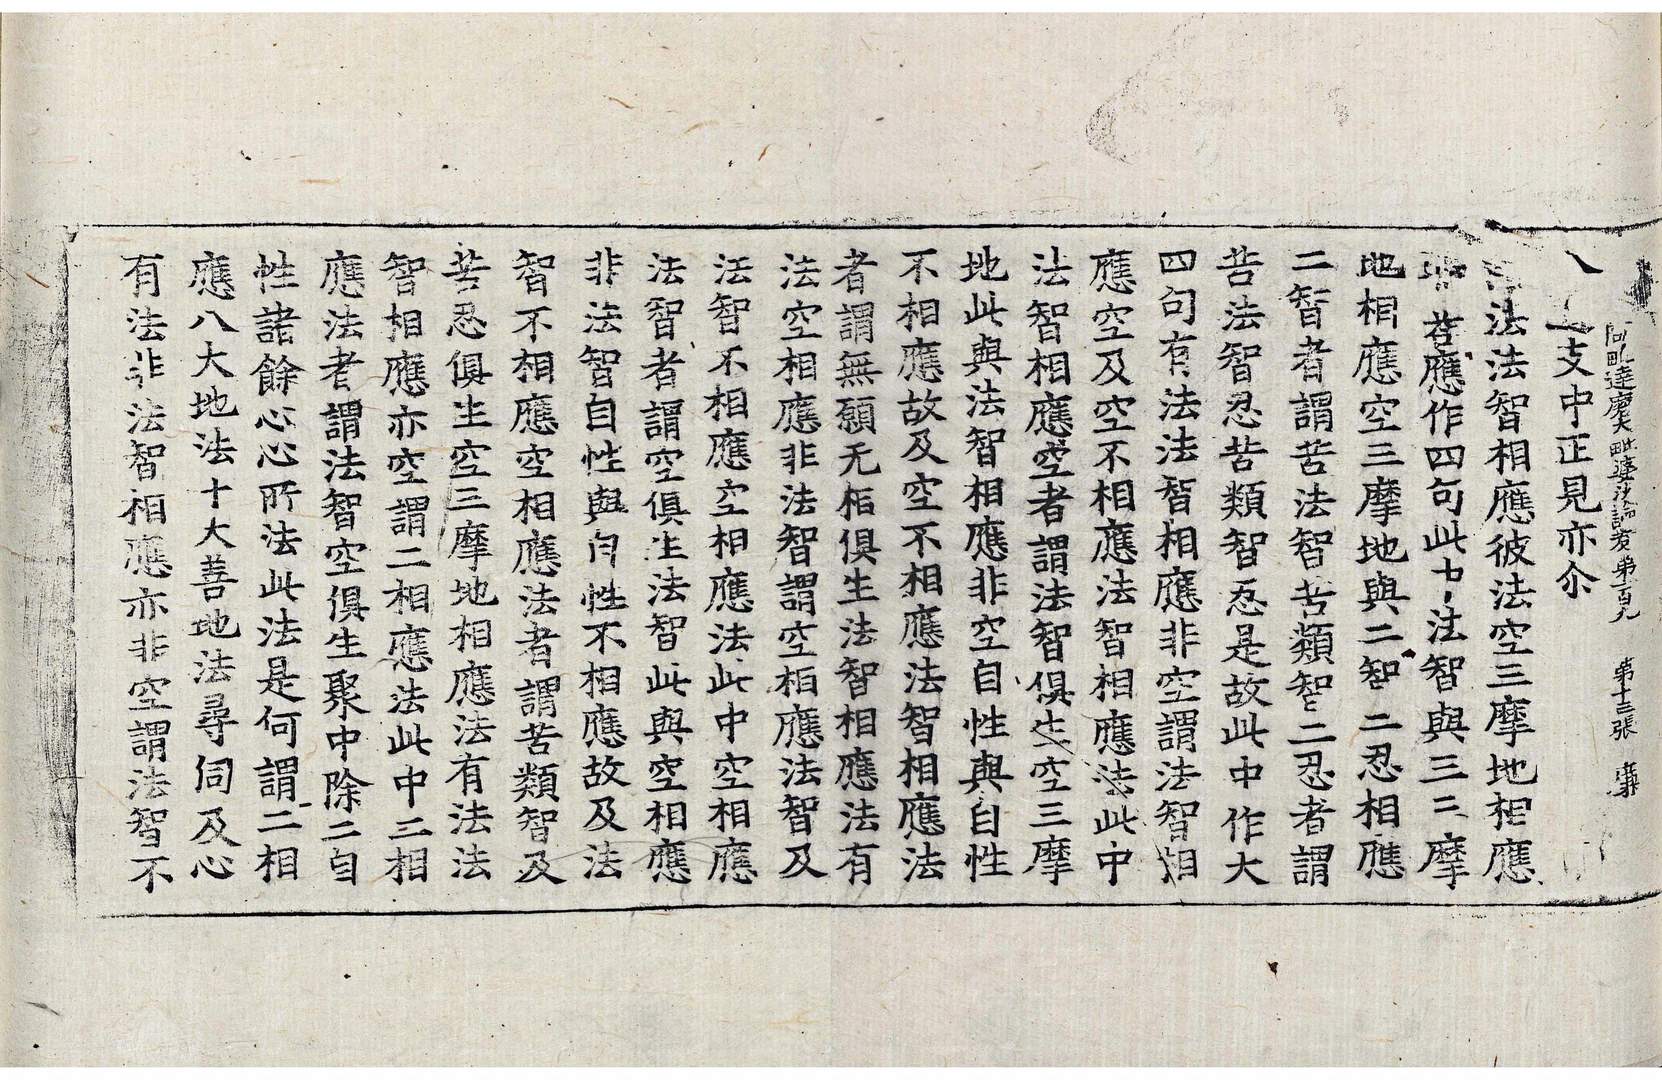 阿毗達磨大毗婆沙論卷第一百九 第十三張
八 支中正見亦尒
法法智相應彼法空三摩地相應
若應作四句此中法智與三三摩
地相應空三摩地與二智二忍相應
二智者謂苦法智苦類智二忍者謂
苦法智忍苦類智忍是故此中作大
四句有法法智相應非空謂法智相
應空及空不相應法智相應法此中
法智相應空者謂法智俱生空三摩
地此與法智相應非空自性與自性
不相應故及空不相應法智相應法
者謂無願无相俱生法智相應法有
法空相應非法智謂空相應法智及
法智不相應空相應法此中空相應
法智者謂空俱生法智此與空相應
非法智自性與自性不相應故及法
智不相應空相應法者謂苦類智及
苦忍俱生空三摩地相應法有法法
智相應亦空謂二相應法此中二相
應法者謂法智空俱生聚中除二自
性諸餘心心所法此法是何謂二相
應八大地法十大善地法尋伺及心
有法非法智相應亦非空謂法智不